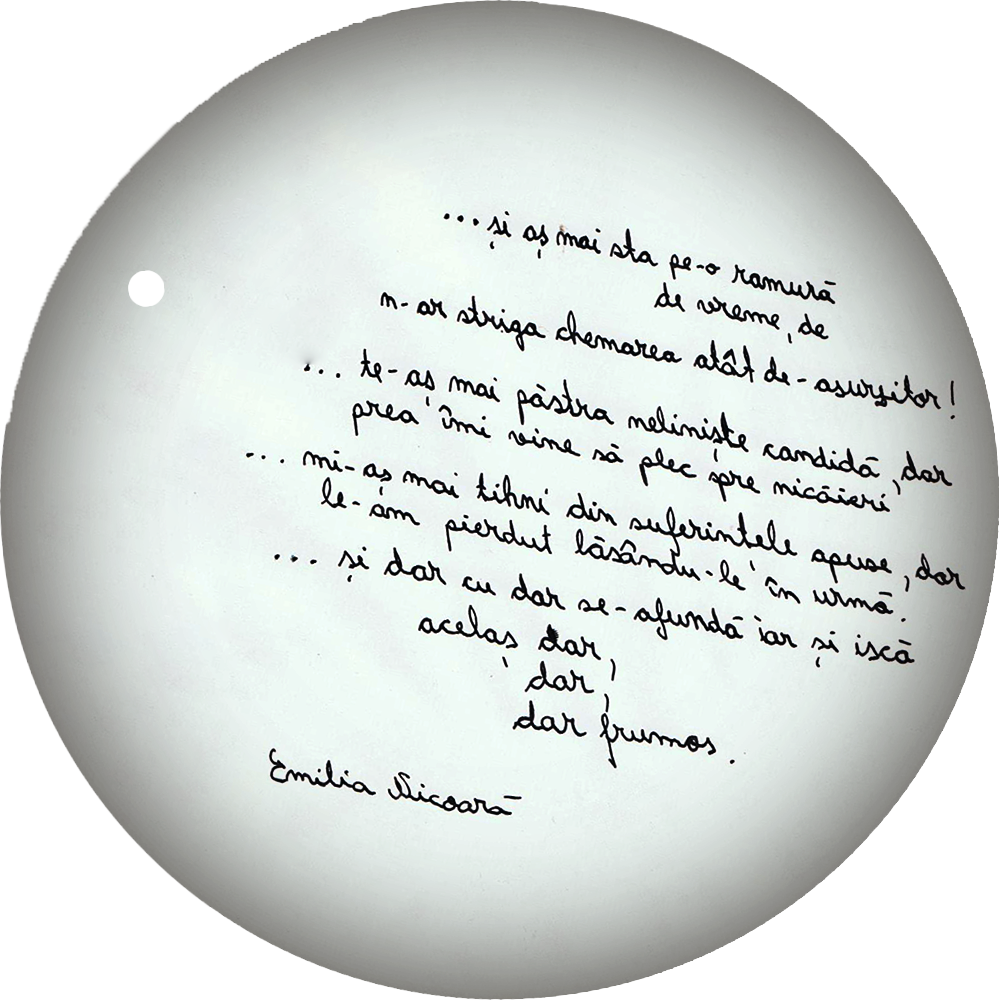 ... și aș mai sta pe-o ramură
de vreme, de
n-ar striga chemarea atât de-asurzitor!
... te-aș mai păstra neliniște candidă, dar
prea îmi vine să plec spre nicăieri
... mi-aș mai tihni din suferintele apuse, dar
le-am pierdut lăsându-le în urmă.
... și dar cu dar se-afundă iar și iscă
acelaș dar,
dar,
dar frumos.
Emilia Nicoară